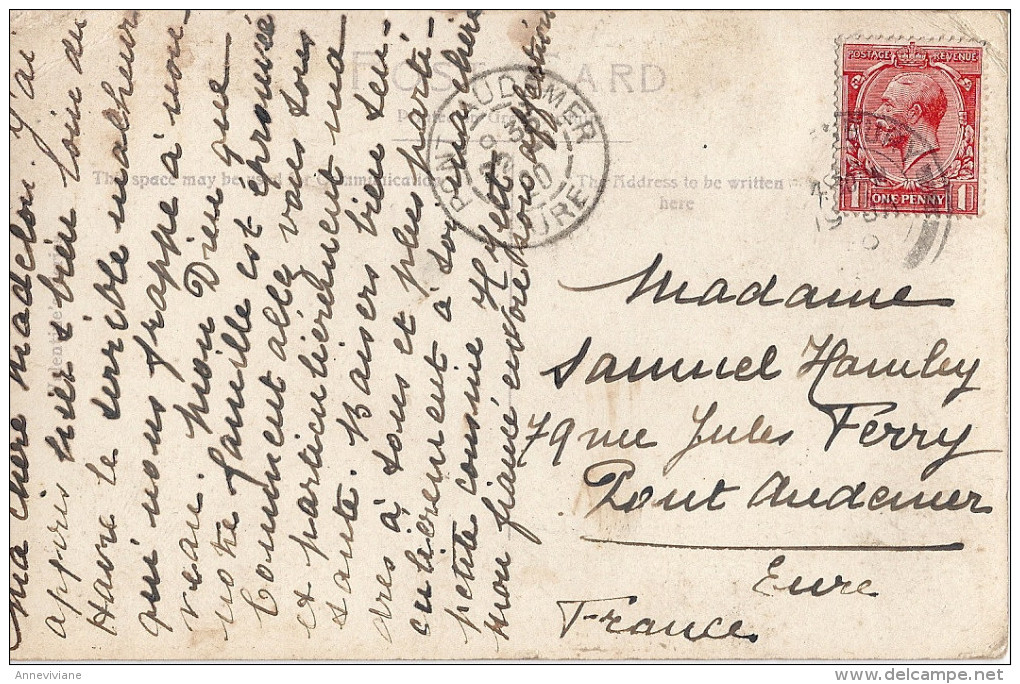 POST CARD
This space may be used for Communication
The Address to be written here
Valentine's
POSTAGE REVENUE
1 1
ONE PENNY
PONT AUDEMER
EURE
Ma chère Madelon. J'ai
appris hier bien loin du
Havre le terrible malheur
qui nous frappe à nou-
veau. mon Dieu que
notre famille est éprouvée
Comment allez vous tous
et particulièrement ma
tante. Baisers bien ten-
dres à tous et plus parti-
culièrement à toi ma chère
petite cousine H. et
mon fiancé encore nous
Madame
Samuel Hamley
79 rue Jules Ferry
Pont Audemer
Eure
France
Anneviviane
delcampe.net